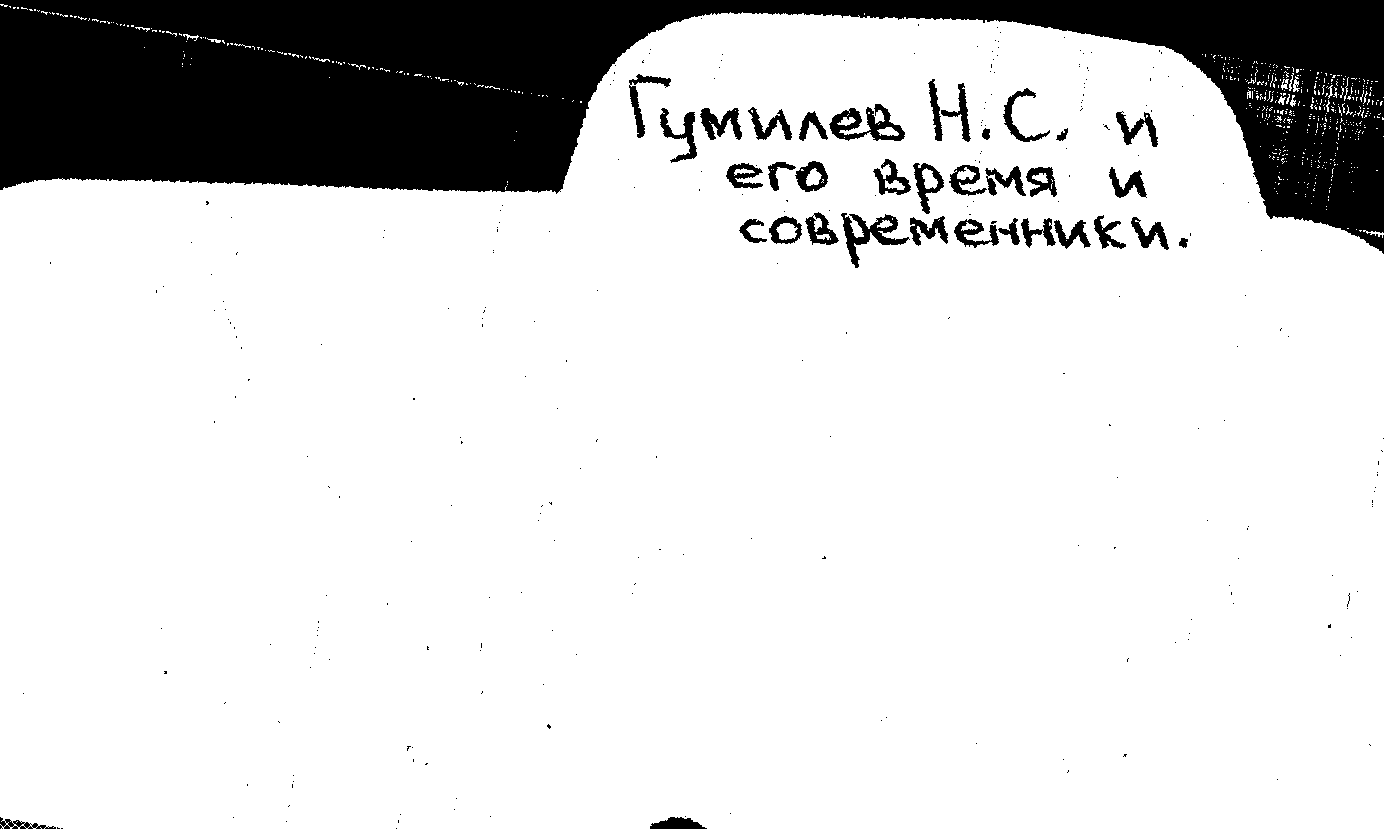 Гумилев Н.С. и
его время и
современники.